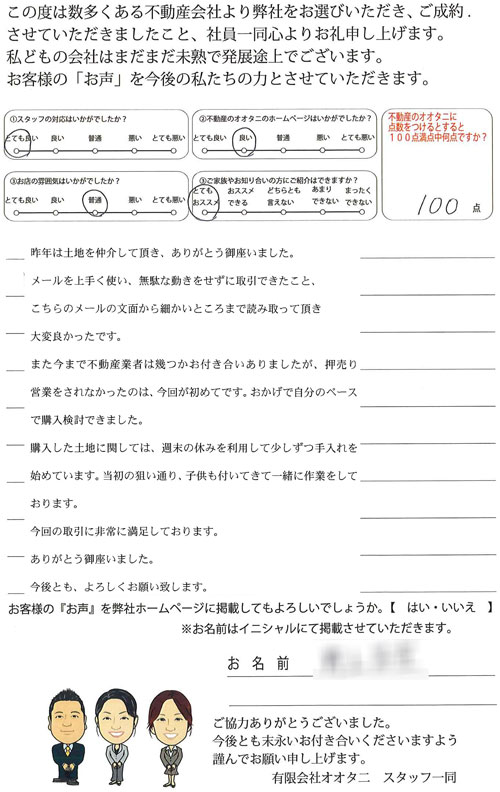 この度は数多くある不動産会社より弊社をお選びいただき、ご成約.
させていただきましたこと、社員一同心よりお礼申し上げます。
私どもの会社はまだまだ未熟で発展途上でございます。
お客様の「お声」を今後の私たちの力とさせていただきます。
①スタッフの対応はいかがでしたか？
とても良い 良い 普通 悪い とても悪い
②不動産のオオタニのホームページはいかがでしたか？
とても良い 良い 普通 悪い とても悪い
③お店の雰囲気はいかがでしたか？
とても良い 良い 普通 悪い とても悪い
⑤ご家族やお知り合いの方にご紹介はできますか？
とても おススメ どちらとも あまり まったく
おススメ できる 言えない できない できない
不動産のオオタニに
点数をつけるとすると
１００点満点中何点ですか？
100 点
昨年は土地を仲介して頂き、ありがとう御座いました。
メールを上手く使い、無駄な動きをせずに取引できたこと、
こちらのメールの文面から細かいところまで読み取って頂き
大変良かったです。
また今まで不動産業者は幾つかお付き合いありましたが、押売り
営業をされなかったのは、今回が初めてです。おかげで自分のペース
で購入検討できました。
購入した土地に関しては、週末の休みを利用して少しずつ手入れを
始めています。当初の狙い通り、子供も付いてきて一緒に作業をして
おります。
今回の取引に非常に満足しております。
ありがとう御座いました。
今後とも、よろしくお願い致します。
お客様の『お声』を弊社ホームページに掲載してもよろしいでしょうか。【　はい・いいえ　】
※お名前はイニシャルにて掲載させていただきます。
お 名 前
ご協力ありがとうございました。
今後とも末永いお付き合いくださいますよう
謹んでお願い申し上げます。
有限会社オオタニ　スタッフ一同